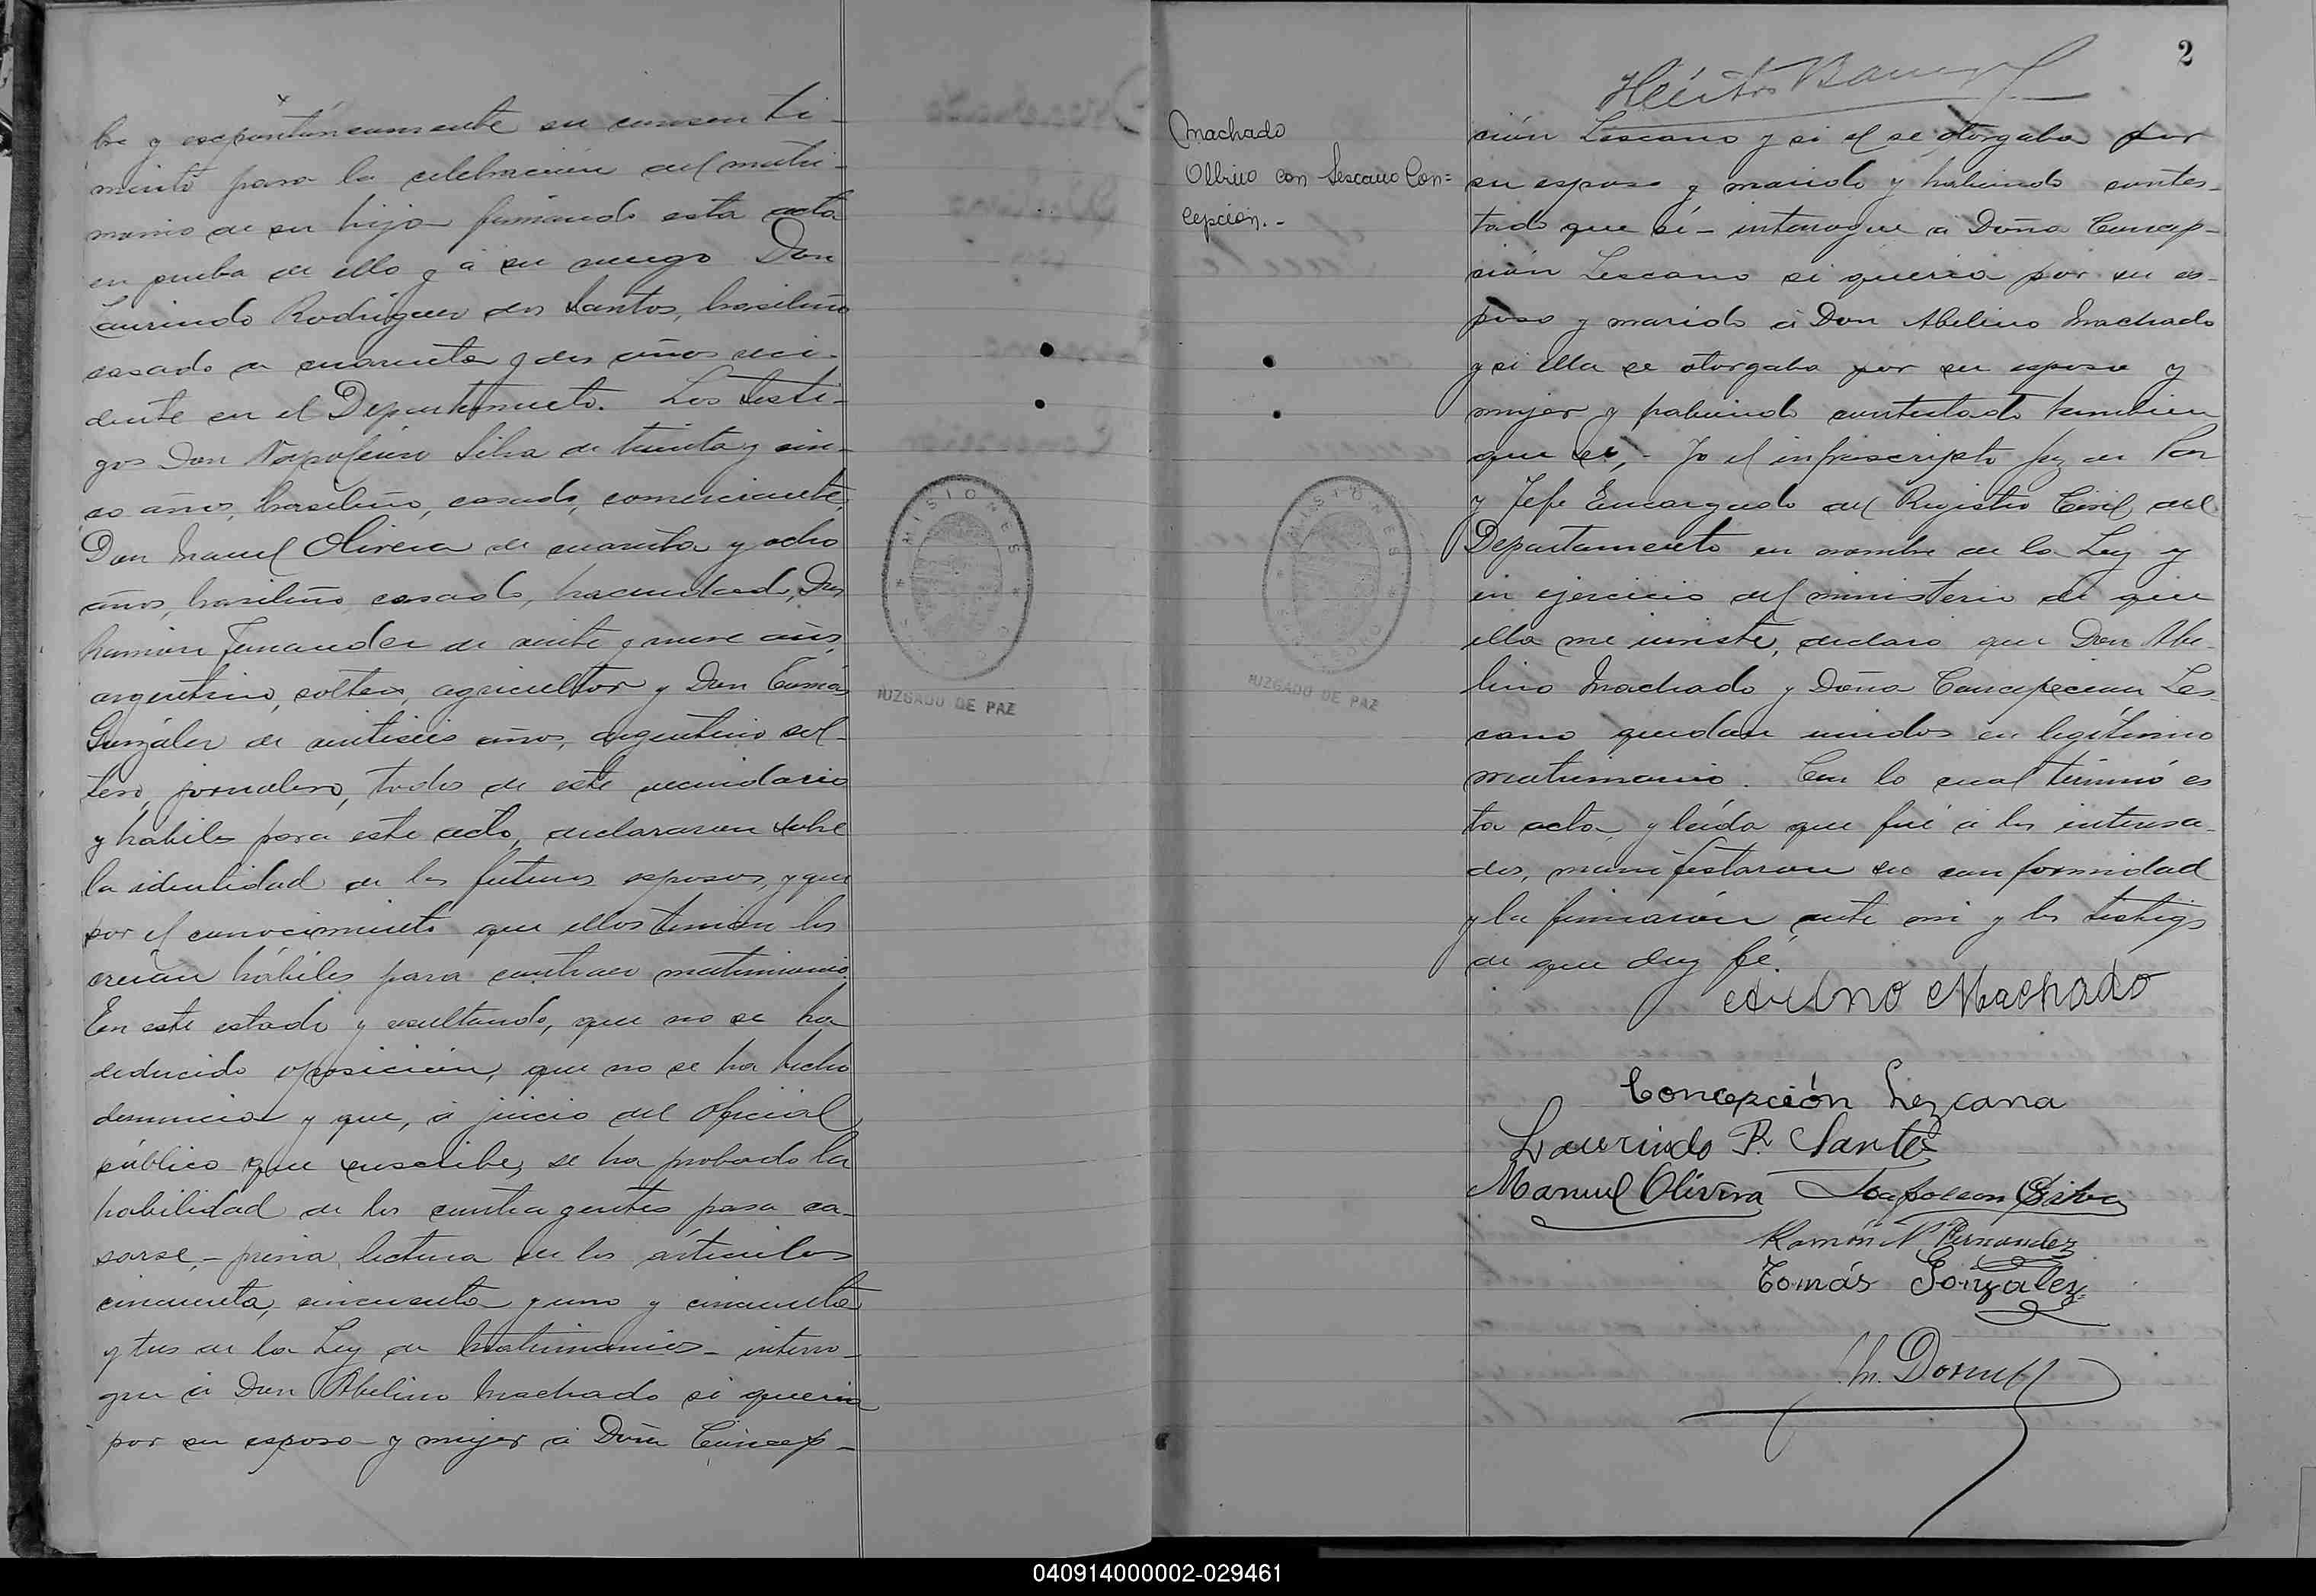 bre y espontáneamente su consenti-
miento para la celebración del matri-
monio de su hija firmando esta acta
en prueba de ello y á su ruego Don
Laurindo Rodríguez dos Santos, brasileño
casado de cuarenta y dos años resi-
dente en el Departamento. Los testi-
gos Don Napoleón Silva de treinta y cin-
co años, brasileño, casado, comerciante,
Don Manuel Olivera de cuarenta y ocho
años, brasileño casado, hacendado, Don
Ramón Fernandez de veinte y nueve años,
argentino, soltero, agricultor y Don Tomás
González de veintiseis años, argentino sol-
tero, jornalero, todos de este vecindario
y hábiles para este acto, declararon sobre
la identidad de los futuros esposos, y que
por el conocimiento que ellos tenían los
creían hábiles para contraer matrimonio.
En este estado y resultando, que no se ha
deducido oposición, que no se ha hecho
denuncia y que, á juicio del Oficial
público que suscribe, se ha probado la
habilidad de los contragentes para ca-
sarse,- previa lectura de los artículos
cincuenta, cincuenta y uno y cincuenta
y tres de la Ley de Matrimonios- interro-
gue á Don Abelino Machado si queria
por su esposa y mujer á Doña Concep-
MISIONES
JUZGADO DE PAZ
2
Héctor
Machado
Olbino con Lescano Con=
cepción.-
MISIONES
JUZGADO DE PAZ
ción Lescano y si el se otorgaba por
su esposo y marido y habiendo contes-
tado que sí- interrogue á Doña Concep-
ción Lescano si queria por su es-
poso y marido á Don Abelino Machado
y si ella se otorgaba por su esposa y
mujer y habiendo contestado tambien
que si,- Yo el infrascripto Juez de Paz
y Jefe Encargado del Registro Civil del
Departamento en nombre de la Ley y
en ejercicio del ministerio de que
ella me inviste, declaro que Don Abe-
lino Machado y Doña Concepcion Les-
cano quedan unidos en legítimo
matrimonio. Con lo cual terminó es
ta acta, y leída que fué á los interesa-
dos, manifestaron su conformidad
y la firmaron ante mi y los testigos
de que doy fé.
Avelino Machado
Concepción Lezcana
Laurindo R. Santos
Manuel Olivera Napoleon Silva
Ramón N Fernandez
Tomás González
040914000002-029461